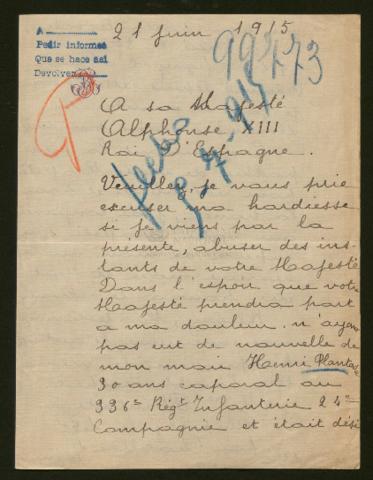 21 juin 1915
A
Pedir informes
Que se hace así
Devolver
99773
Hecho
A sa Majesté
Alphonse XIII
Roi D'Espagne.
Veuillez, je vous prie
excuser ma hardiesse
si je viens par la
présente, abuser des ins-
tants de votre Majesté
Dans l'espoir que votre
Majesté prendra part
a ma douleur. n'ayant
pas eut de nouvelle de
mon mari Henri Plantade
30 ans caporal au
336e Régt Infanterie 24me
Compagnie et était dési